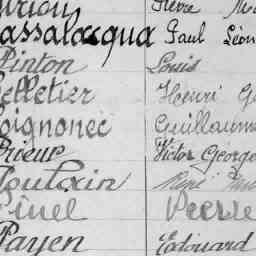 assalacqua Paul Léon
Pinton Louis
elletier Henri G
oignonec Guillaum
Prieur Victor George
Poulain René
inel Pierre
Payen Edouard